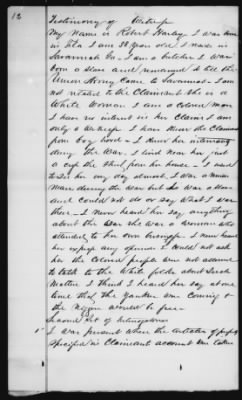 12
Testimony of Witness
My Name is Robert I was born
in Fla I am 38 years old I reside in
Savannah Ga. I am a butcher I was
born a slave and remained so till the
Union Army Came to Savannah. I am
not related to the Claimant She is a
White Woman I am a Colored man
I have no interest in her Claim I am
only a witness I have Known the Claimant
from boy hood. I Knew her intimately
during the War. I lived near her just
the third from her house. I used
to See her very day almost. I was a Union
Man during the war but was a slave
and could not do or say what I was
then. I Never heard her say anything
about the War she was a woman who
attended to her own business. I never heard
her express any opinion I would not ask
her the Colored people were not
to talk to the White folks about Such
Matters I think I heard her say at one
time that the Yankees were Coming &
the Niggers would be free.
Second Set of Interrogatories
1st
I was present when the articles of property
Specified in Claimants account were taken